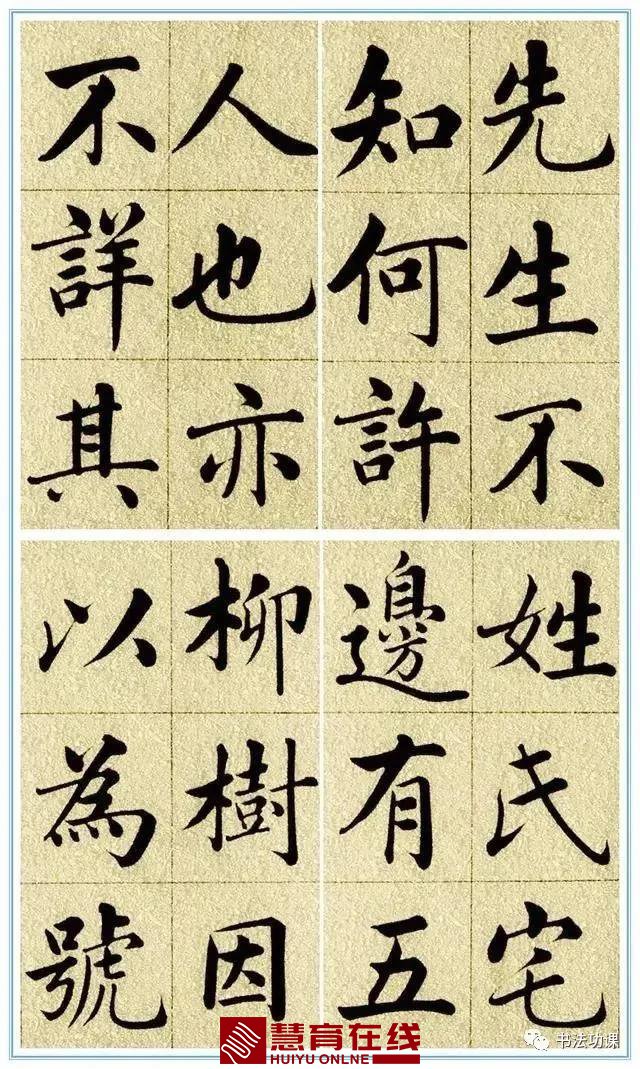 先生不
知何許
人也亦
不詳其
姓氏宅
邊有五
柳樹因
以為號
慧育在线
HUIYU ONLNE
书法功课